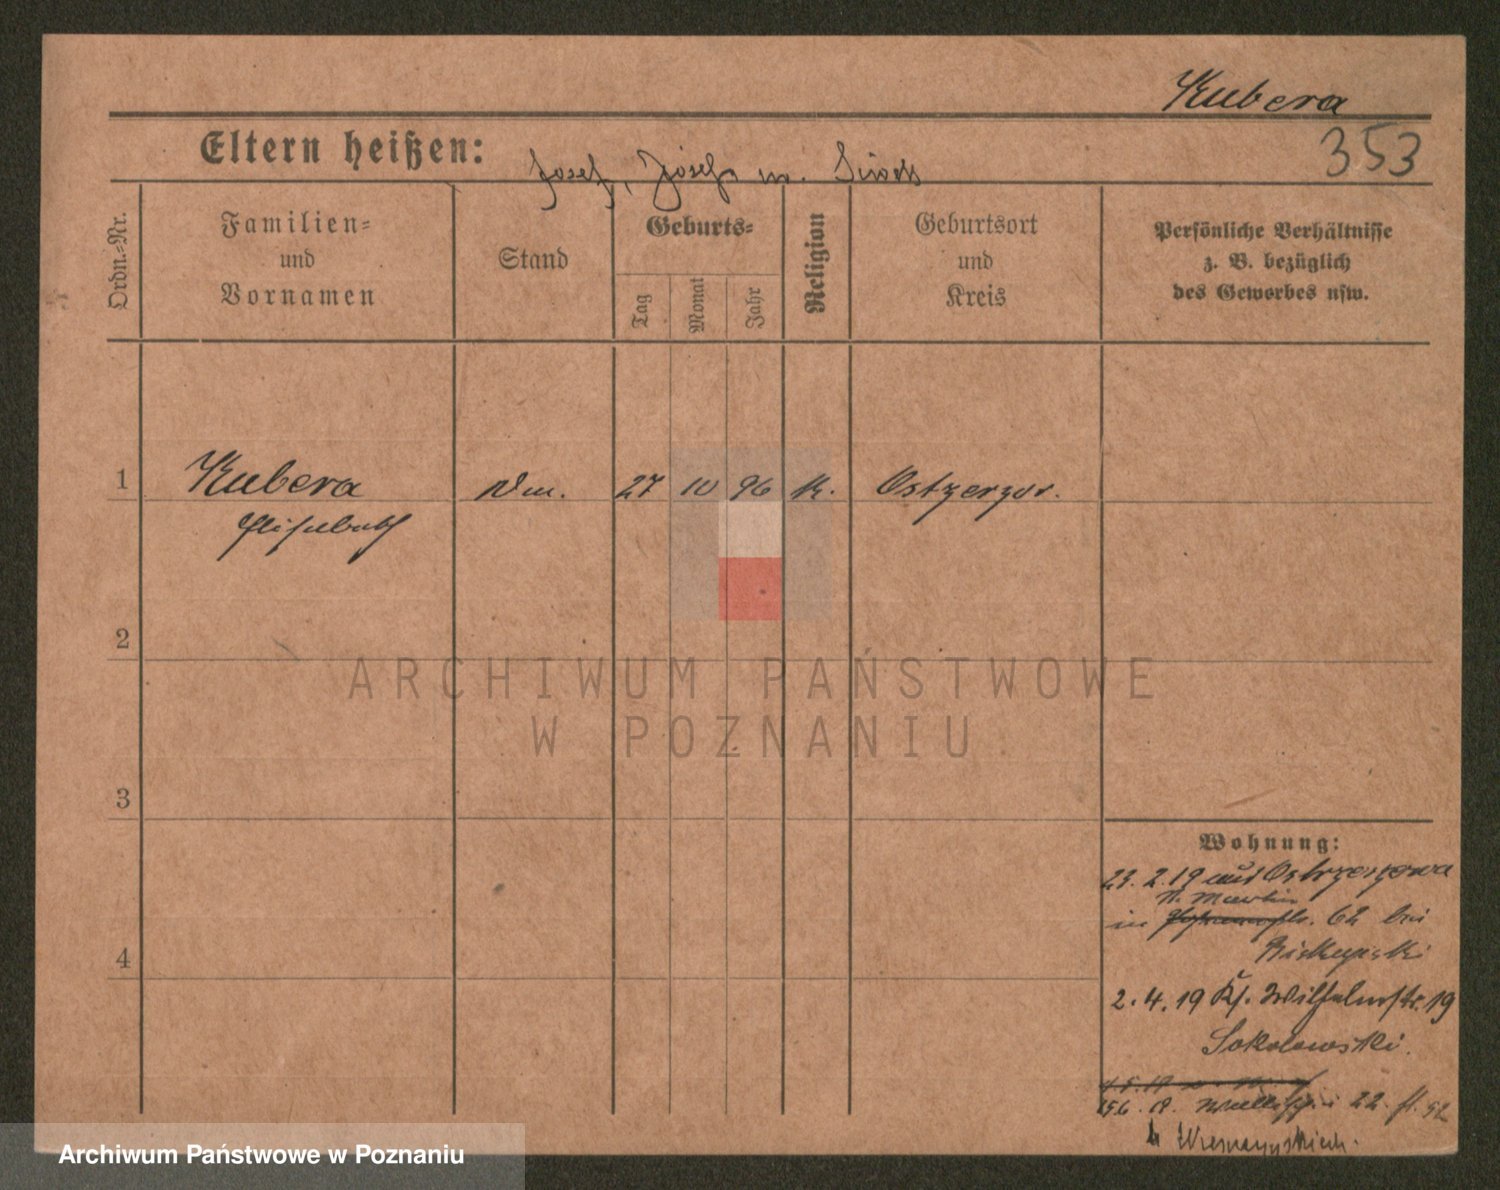 Kubera
353
Eltern heißen: Josef, Josefa
Ordn.=Nr.
Familien=
und
Vornamen
Stand
Geburts=
Tag
Monat
Jahr
Religion
Geburtsort
und
Kreis
Persönliche Verhältnisse
z. B. bezüglich
des Gewerbes usw.
1 Kubera 27 10 96 K.
Elisabeth
2
ARCHIWUM PAŃSTWOWE
W POZNANIU
3
Wohnung:
23.2.19 aus
St. Martin
in 62 bei
4
2.4.19 Kl. Wilhelmstr. 19
Sokolowski.
22
Archiwum Państwowe w Poznaniu